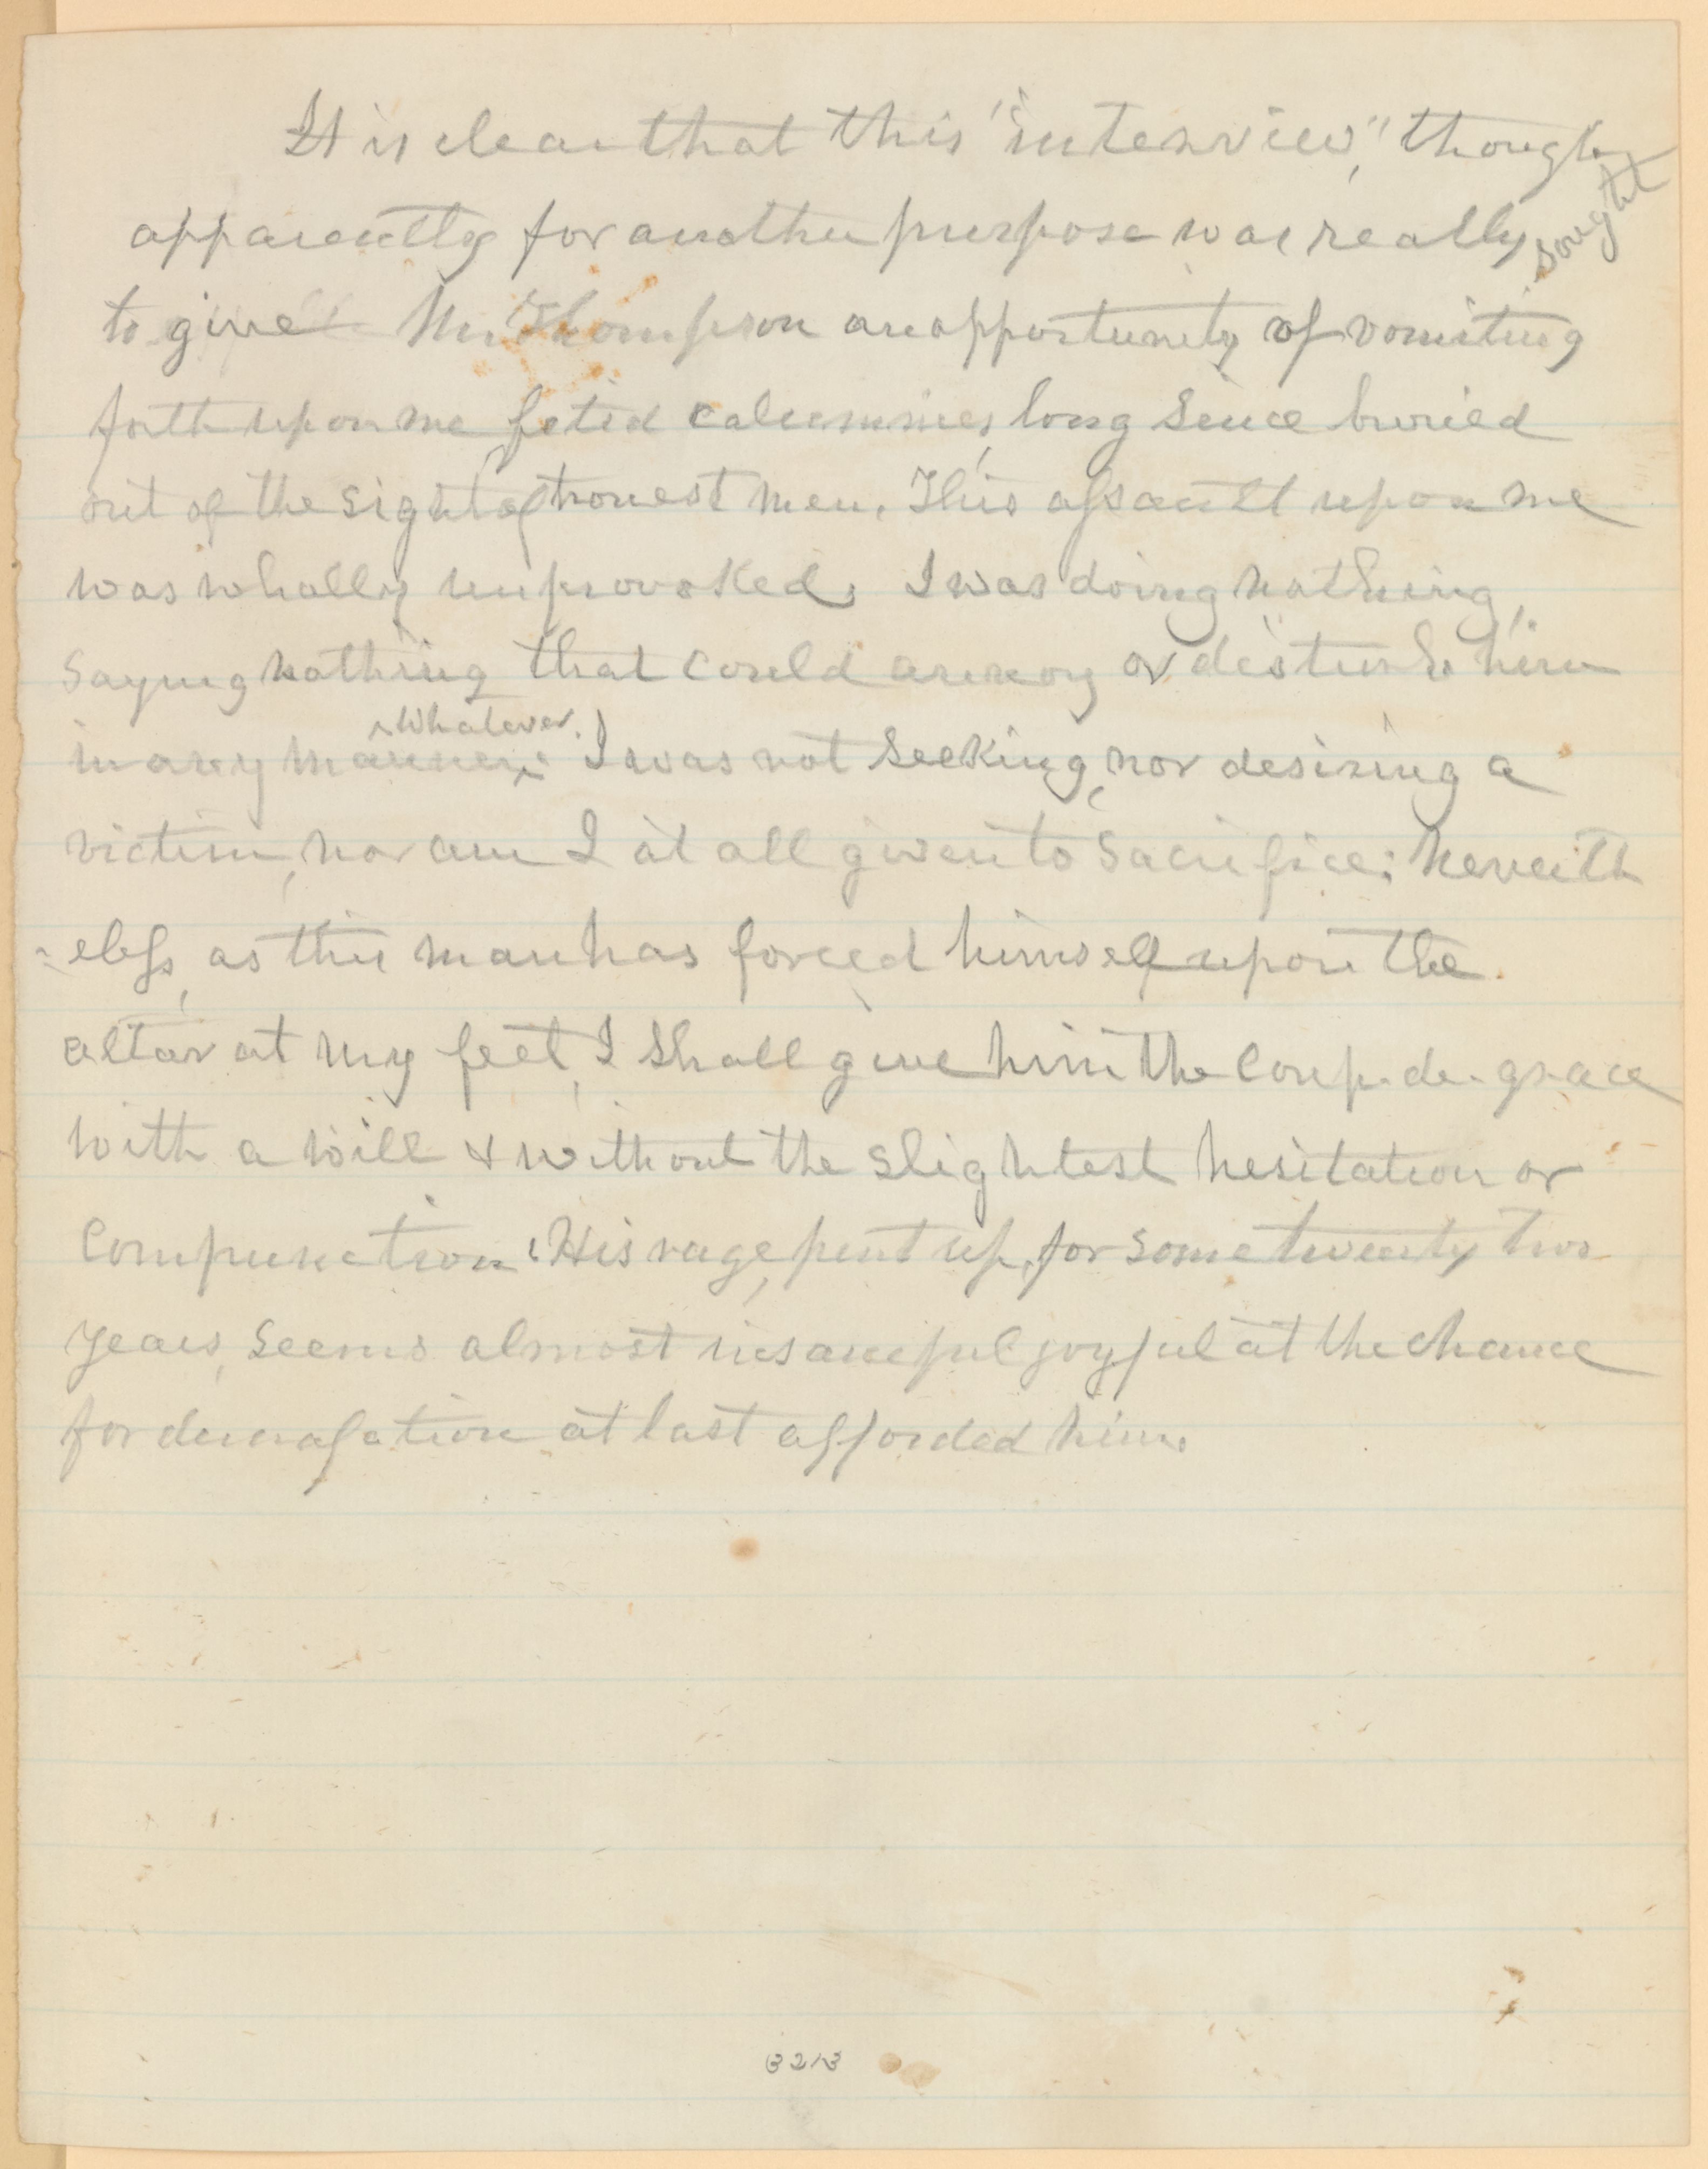 It is clear that this "interview," though
apparently for another purpose was really sought
to give Mr. Thompson an opportunity of vomiting
forth upon me, fetid calumnies, long since buried
out of the sight of honest men. This assault upon me
was wholly unprovoked. I was doing nothing,
saying nothing that could annoy or disturb him
in any manner whatever. I was not seeking, nor desiring a
victim, nor am I at all given to sacrifice; neverth
-eless, as this man has forced himself upon the
altar at my feet, I shall give him the coup-de-grace
with a will & without the slightest hesitation or
compunction. His rage, pent up, for some twenty two
years, seems almost insane joyful at the chance
for at last afforded him.
3213